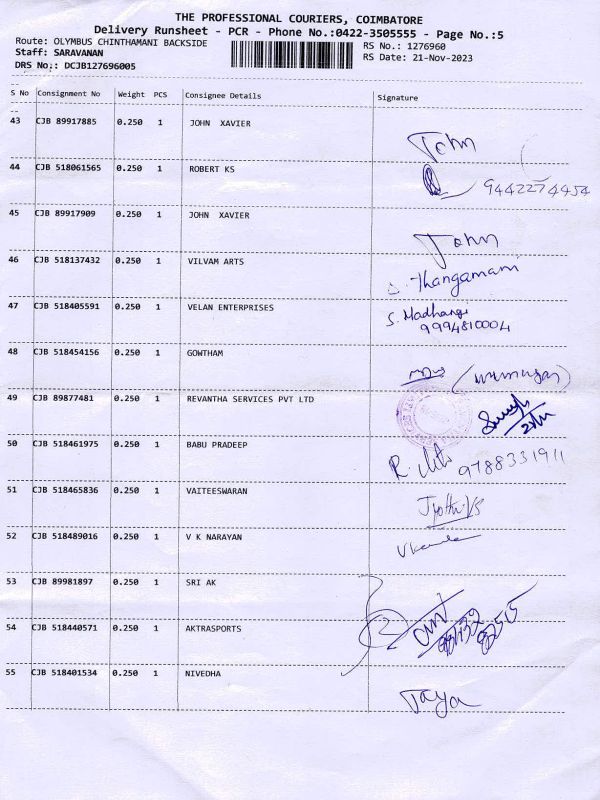 THE PROFESSIONAL COURIERS, COIMBATORE
Delivery Runsheet - PCR - Phone No.:0422-3505555 - Page No.:5
Route: OLYMBUS CHINTHAMANI BACKSIDE RS No.: 1276960
Staff: SARAVANAN RS Date: 21-Nov-2023
DRS No.: DCJB127696005
S No Consignment No Weight PCS Consignee Details Signature
43 CJB 89917885 0.250 1 JOHN XAVIER
John
44 CJB 518061565 0.250 1 ROBERT KS
9442274454
45 CJB 89917909 0.250 1 JOHN XAVIER
John
46 CJB 518137432 0.250 1 VILVAM ARTS
S. Thangamani
47 CJB 518405591 0.250 1 VELAN ENTERPRISES
S. Madhangi
9994810004
48 CJB 518454156 0.250 1 GOWTHAM
49 CJB 89877481 0.250 1 REVANTHA SERVICES PVT LTD
50 CJB 518461975 0.250 1 BABU PRADEEP
9788331911
51 CJB 518465836 0.250 1 VAITEESWARAN
52 CJB 518489016 0.250 1 V K NARAYAN
53 CJB 89981897 0.250 1 SRI AK
54 CJB 518440571 0.250 1 AKTRASPORTS
55 CJB 518401534 0.250 1 NIVEDHA
Jaya